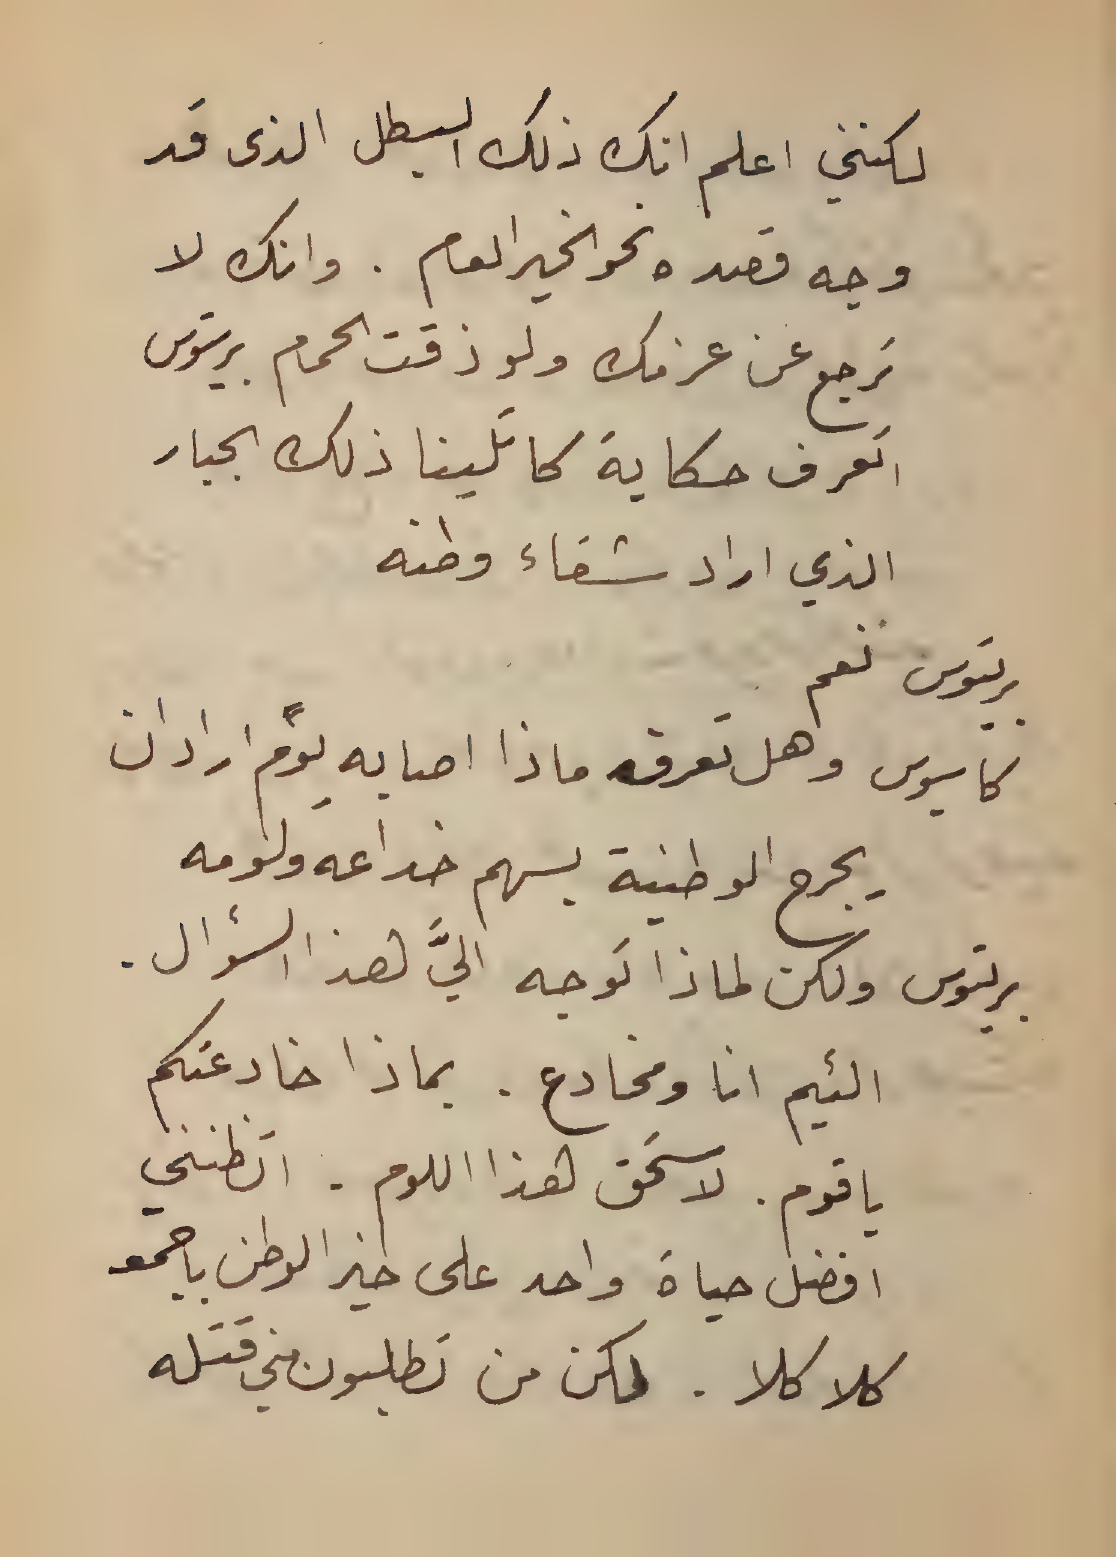 لكنني اعلم انك ذلك البطل الذى قد
وجه قصده نحو الخير العام . وانك لا
ترجع عن عزمك ولو ذقت الحمام بريتوس
اتعرف حكاية كاتلينا ذلك الجبار
الذي اراد شقاء وطنه
بريتوس نعم
كاسيوس وهل تعرف ماذا اصابه يوم اراد ان
يجرح الوطنية بسهم خداعه ولومه
بريتوس ولكن لماذا توجه اليَّ هذا السؤال .
الئيم انا ومخادع . بماذا خادعتكم
ياقوم . لاستحق هذا اللوم . اتظنني
افضل حياة واحد على خير الوطن باجمعه
كلا كلا . لكن من تطلبون مني قتله